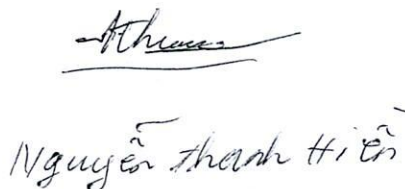 Nguyễn Thanh Hiền